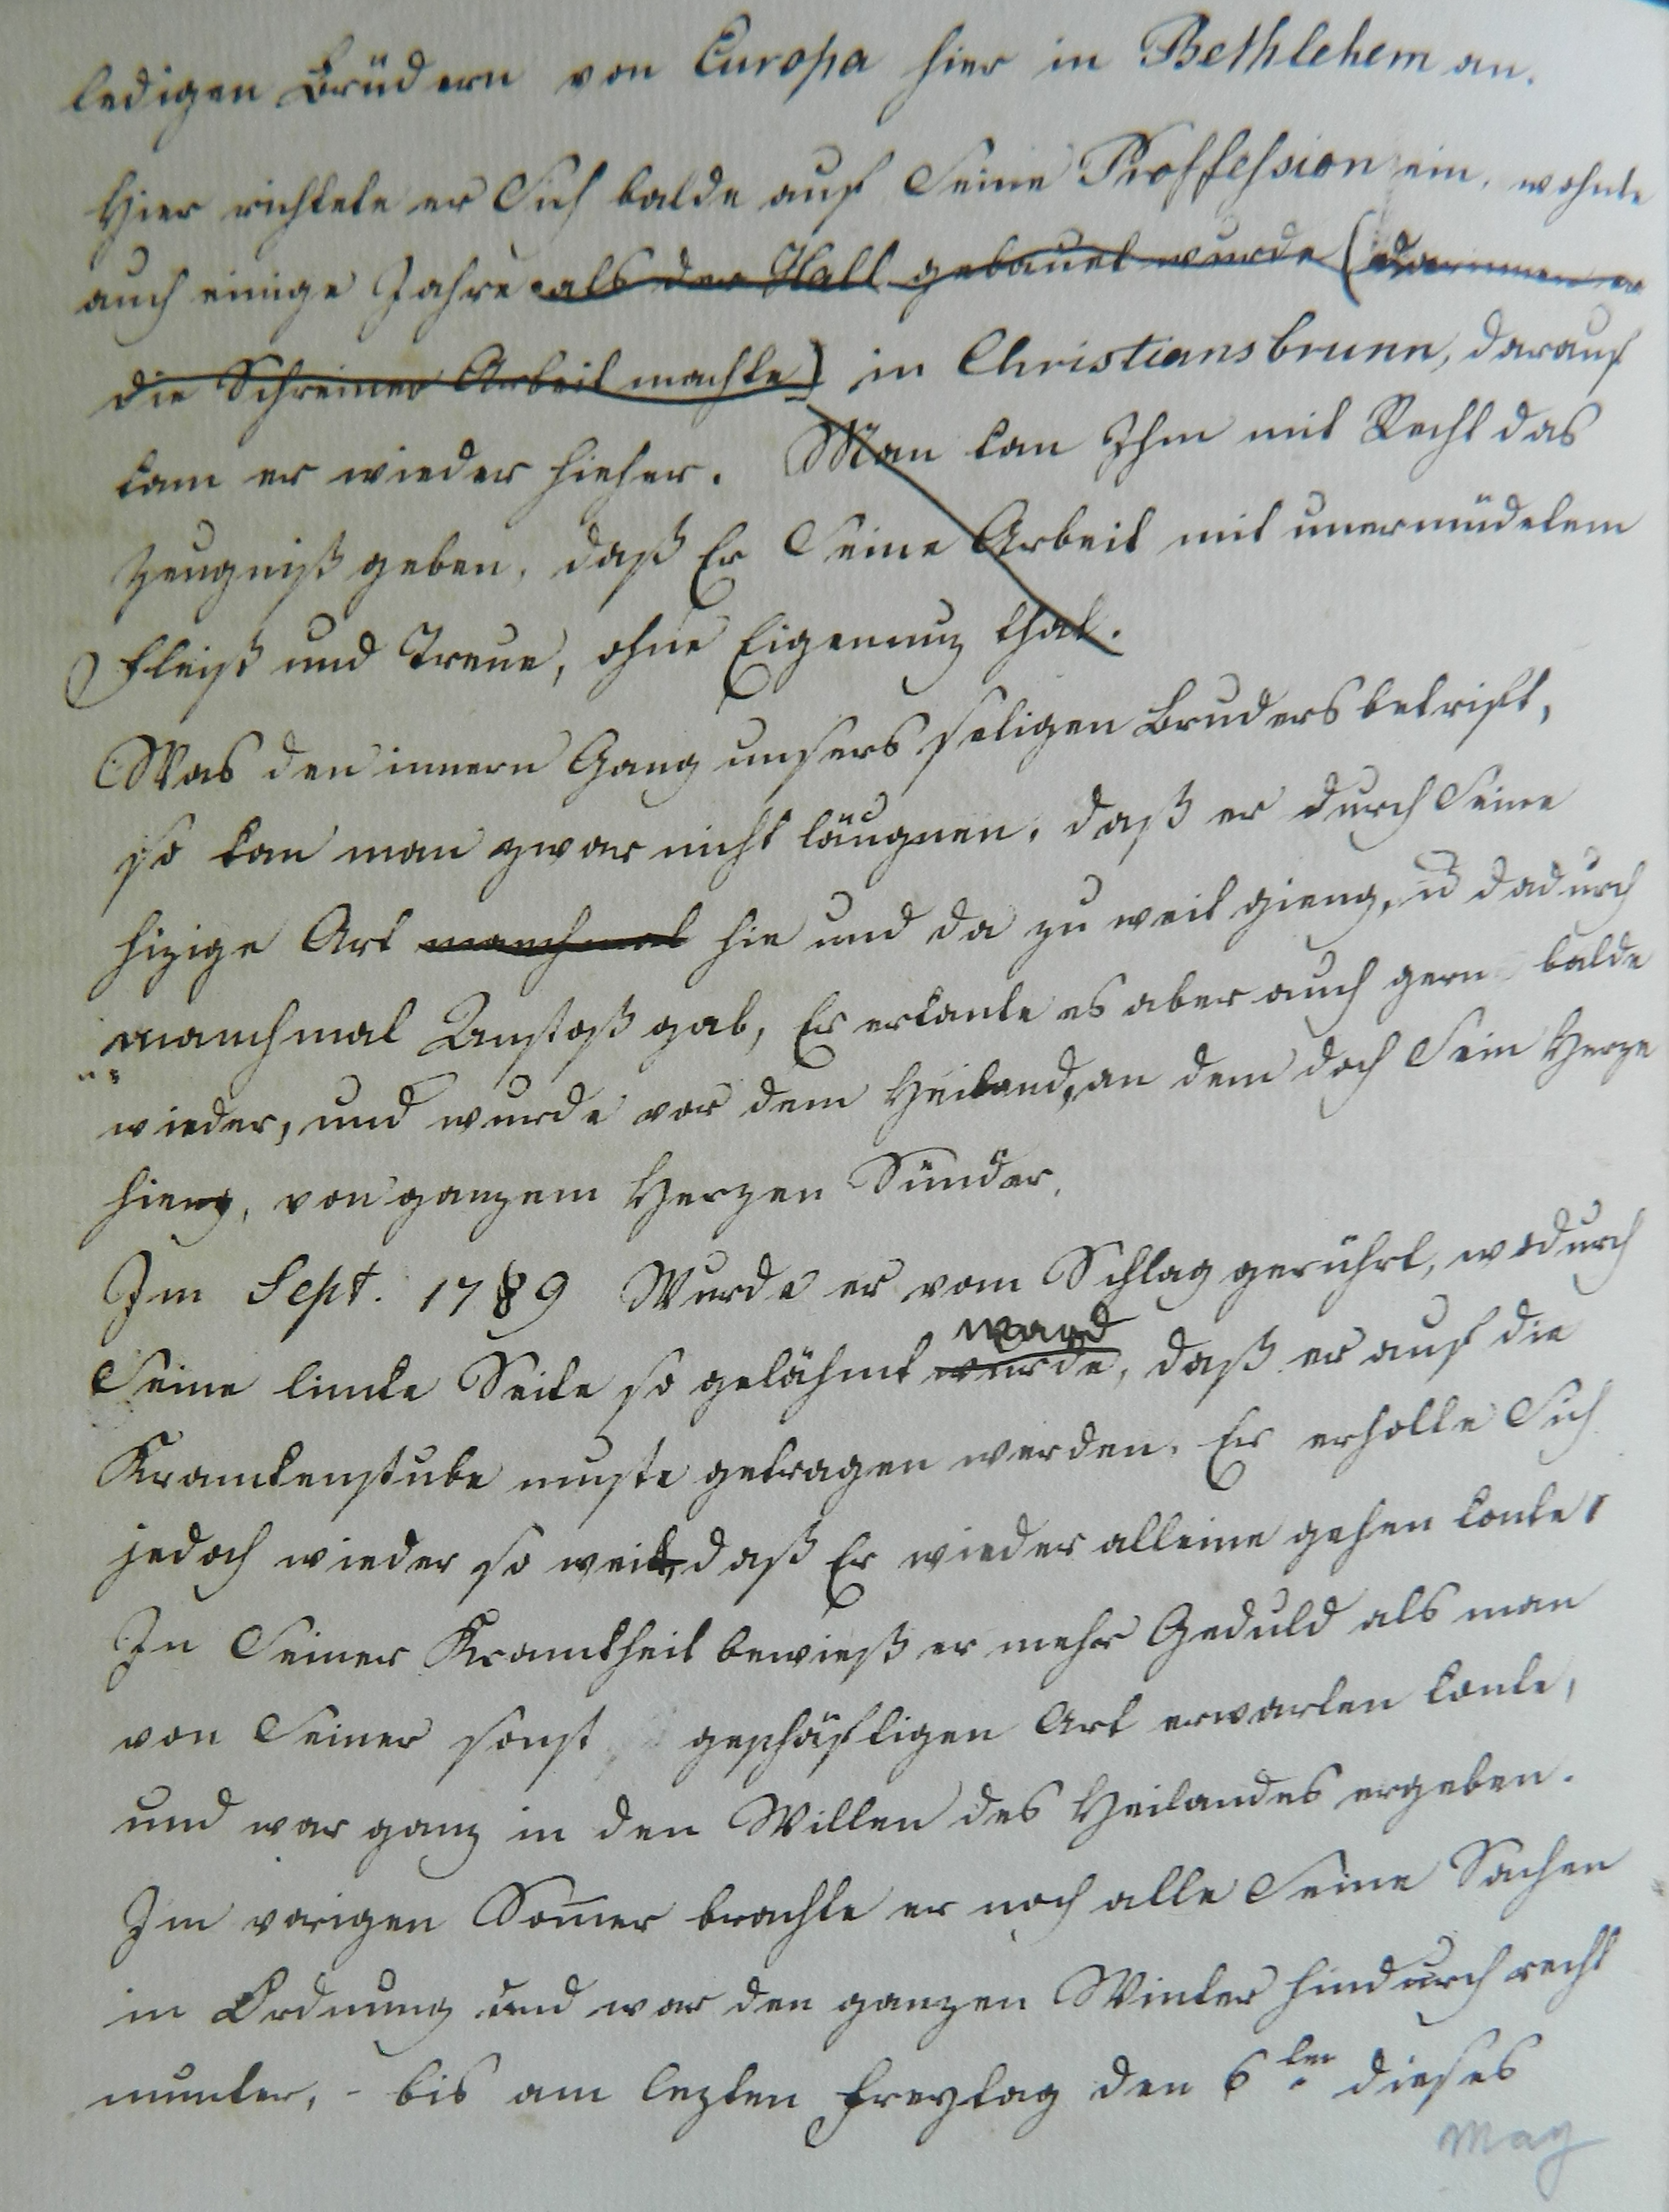 ledigen Brüdern von Europa hier in Bethlehem an.
Hier richtete er Sich balde auf Seine Proffession ein, wohnte
auch einige Jahre als der Stall gebauet wurde (darinnen er
die Schreiner Arbeit machte) in Christiansbrunn, darauf
kam er wieder hieher. Man kan Ihm mit Recht das
Zeugniß geben, daß Er Seine Arbeit mit unermüdetem
Fleiß und Treue, ohne Eigennuz that.
Was den innern Gang unsers seligen Bruders betrift,
so kan man zwar nicht läugnen, daß er durch Seine
hizige Art manchmal hie und da zu weit gieng, u dadurch
manchmal Anstoß gab, Er erkante es aber auch gern balde
wieder, und wurde vor dem Heiland, an dem doch Sein Herze
hieng, von ganzem Herzen Sünder.
Im Sept. 1789 Wurde er vom Schlag gerührt, wodurch
ward
Seine lincke Seite so gelähmt wurde, daß er auf die
Kranckenstube muste getragen werden. Er erholte Sich
jedoch wieder so weit, daß Er wieder alleine gehen konte,
In Seiner Kranckheit bewieß er mehr Geduld als man
von Seiner sonst geschäftigen Art erwarten konte,
und war ganz in den Willen des Heilandes ergeben.
Im vorigen Som̅er brachte er noch alle Seine Sachen
in Ordnung und war den ganzen Winter hindurch recht
munter, - bis am lezten Freytag den 6ten dieses
May